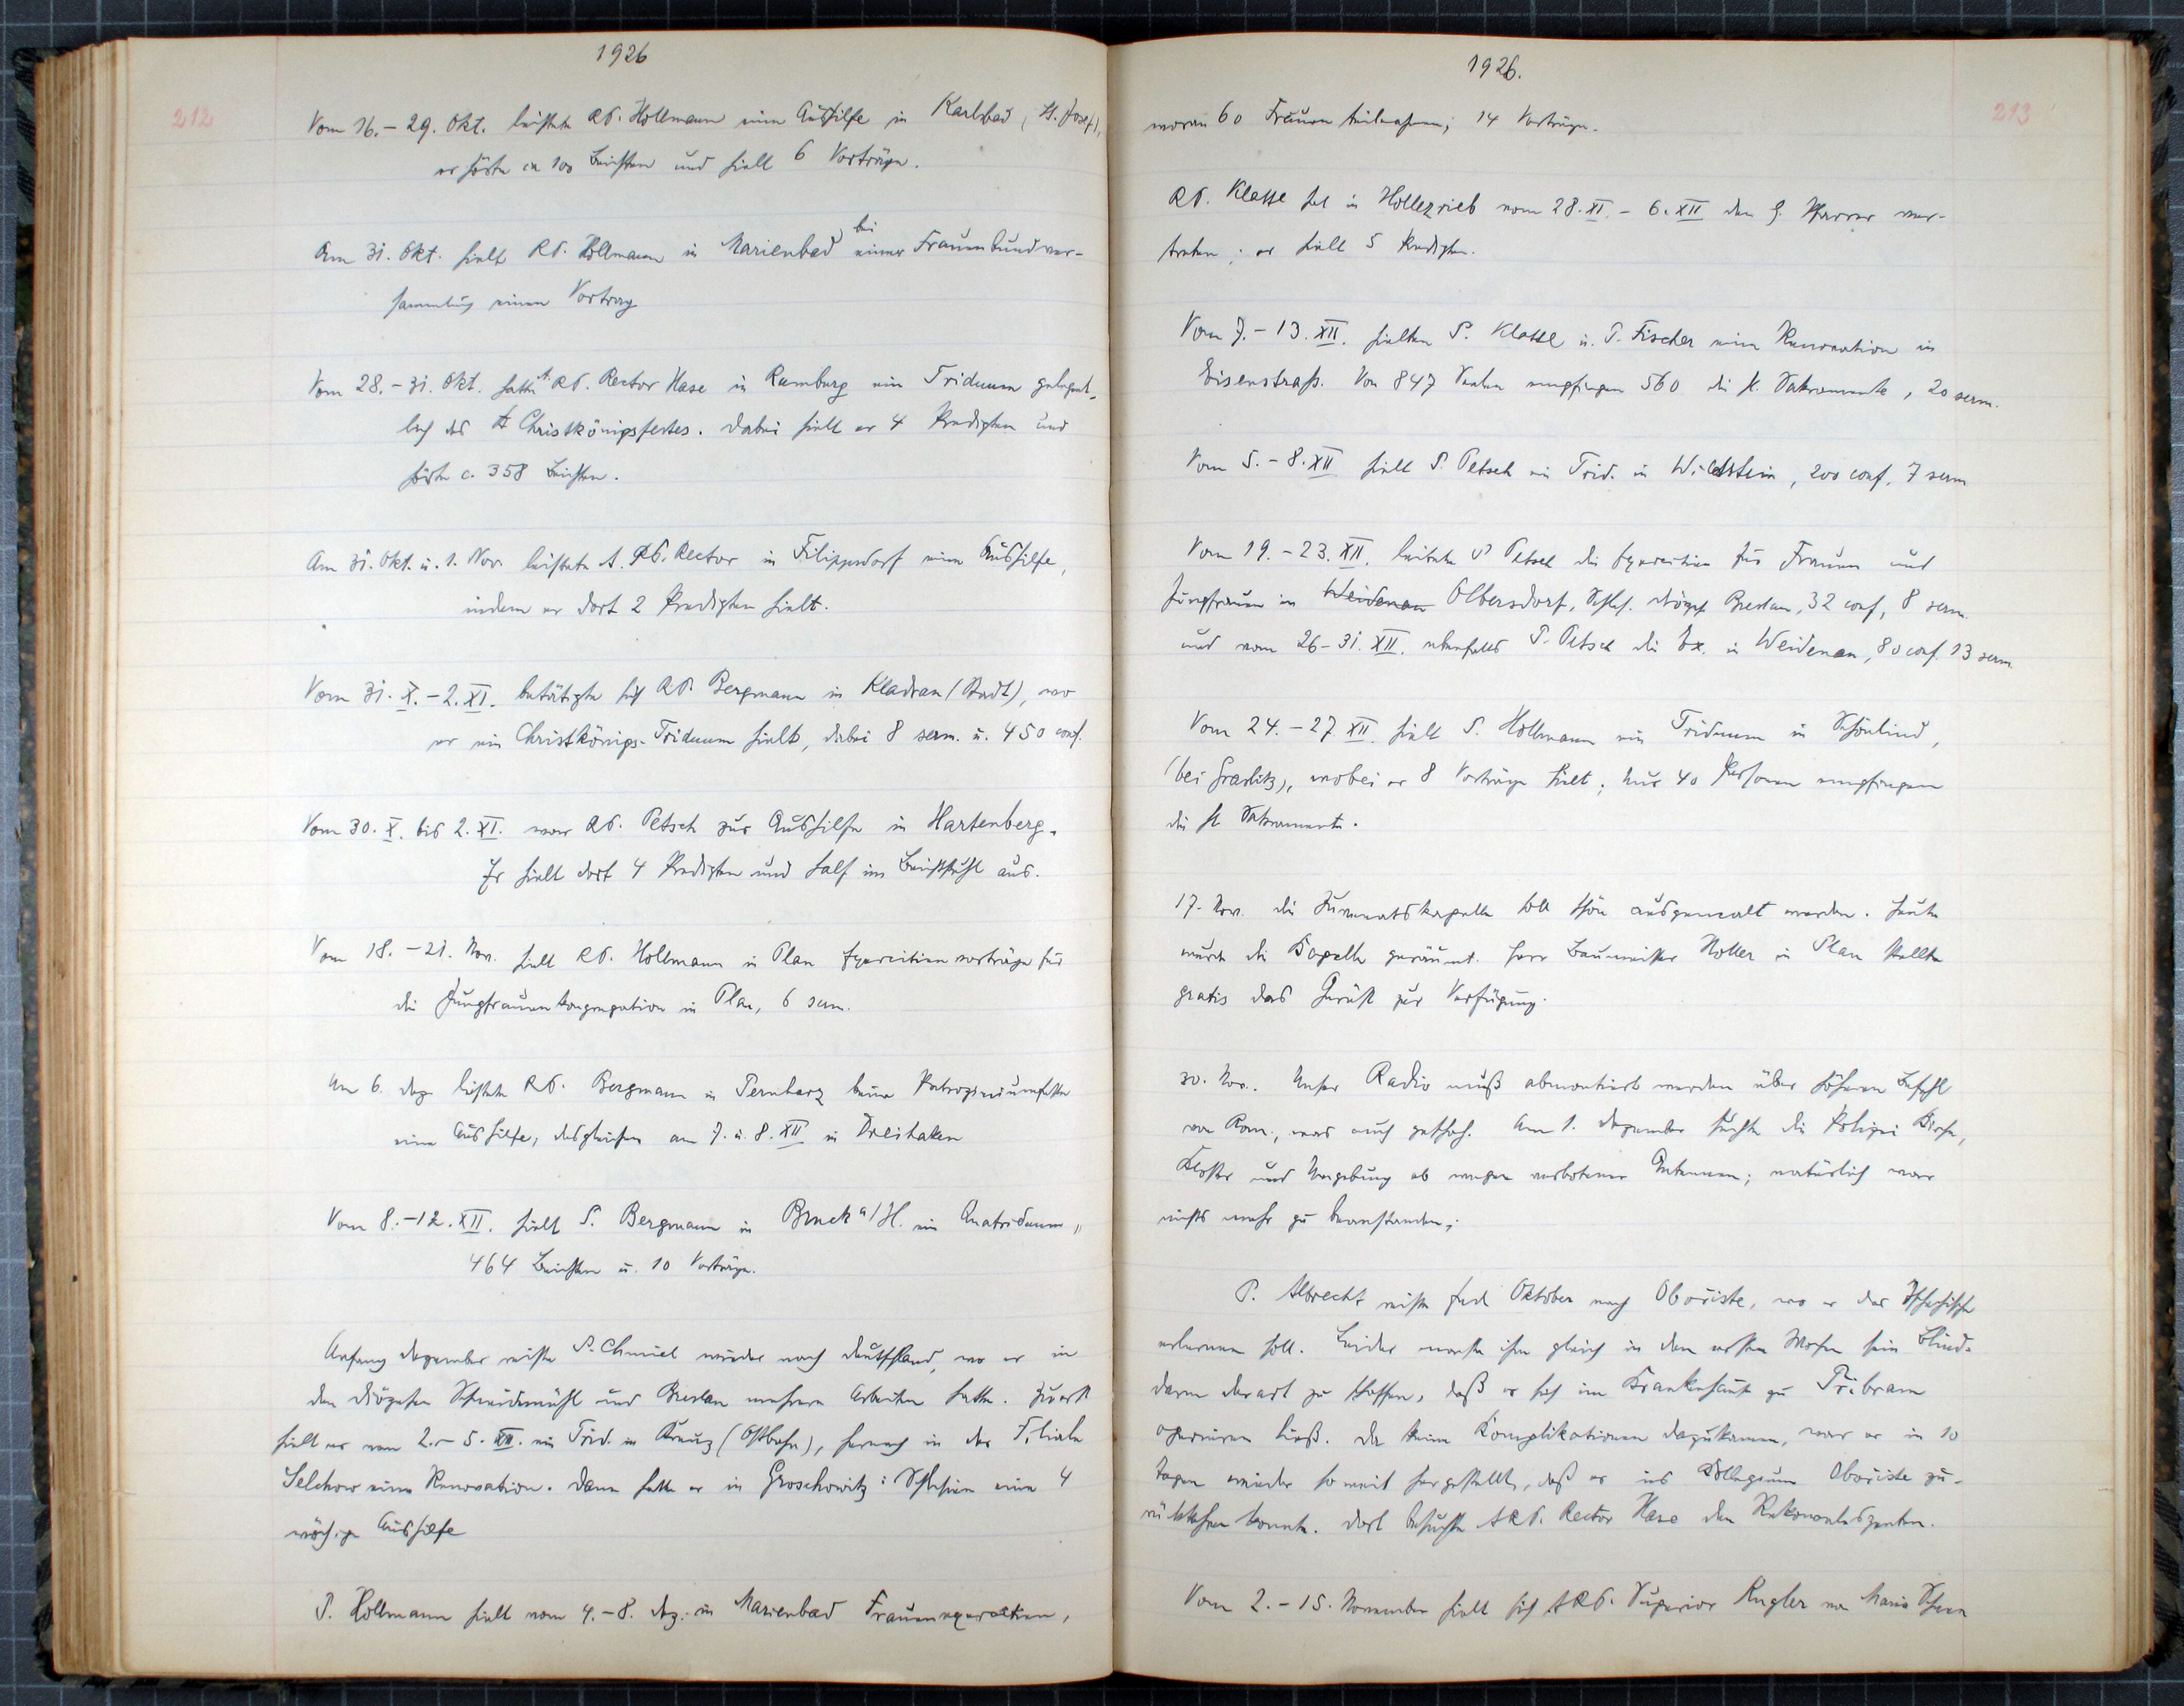 1926
212
Vom 16. – 29. Okt. leistete RP. Hollmann eine Aushilfe in Karlsbad (St. Josef),
er hörte ca 100 Beichten und hielt 6 Vorträge.
Am 31. Okt. hielt RP. Hollmann in Marienbad bei einer Frauenbundver-
sammlung einen Vortrag
Vom 28. – 31. Okt. hatte A. RP. Rector Hase in Rumburg ein Triduum gelegent-
lich des Christkönigsfestes. Dabei hielt er 4 Predigten und
hörte c. 358 Beichten.
Am 31. Okt. u. 1. Nov. leistete A. RP. Rector in Filippsdorf eine Aushilfe,
indem er dort 2 Predigten hielt.
Vom 31. X. – 2. XI. betätigte sich RP. Bergmann in Kladrau (Stadt), wo
er ein Christkönigs-Triduum hielt, dabei 8 serm. u. 450 conf.
Vom 30. X. bis 2. XI. war RP. Petsch zur Aushilfe in Hartenberg.
Er hielt dort 4 Predigten und half im Beichtstuhl aus.
Vom 18. – 21. Nov. hielt RP. Hollmann in Plan Exercitienvorträge für
die Jungfrauenkongregation in Plan, 6 serm.
Am 6. Dez. leistete RP. Bergmann in Pernharz beim Patroziniumsfeste
eine Aushilfe, desgleichen am 7. u. 8. XII in Dreihaken
Vom 8. – 12. XII. hielt P. Bergmann in Bruck a/H. ein Quatriduum,
464 Beichten u. 10 Vorträge.
Anfang Dezember reiste P. Chmiel wieder nach Deutschland, wo er in
den Diözesen Schneidemühl und Breslau mehrere Arbeiten hatte. Zuerst
hielt er vom 2. – 5. XII. ein Trid. in Kreuz (Ostbahn), hernach in der Filiale
Selchow eine Renovation. Dann hatte er in Groschowitz : Schlesien eine 4
wöchige Aushilfe
P. Hollmann hielt vom 4. – 8. Dez. in Marienbad Frauenexercitien,
1926.
213
woran 60 Frauen teilnahmen; 14 Vorträge.
RP. Klatte hat in Hollezrieb vom 28. XI. – 6. XII den H. Pfarrer ver-
treten; er hielt 5 Predigten.
Vom 7. – 13. XII. hielten P. Klatte u. P. Fischer eine Renovation in
Eisenstraß. Von 847 Seelen empfingen 560 die hl. Sakramente, 20 serm.
Vom 5. – 8. XII hielt P. Petsch ein Trid. in Wildstein, 200 conf. 7 serm
Vom 19. – 23. XII. leitete P Petsch die Exercitien für Frauen und
Jungfrauen in Weidenau Olbersdorf, Schles. Diözese Breslau, 32 conf, 8 serm.
und vom 26 – 31. XII. ebenfalls P. Petsch die Ex. in Weidenau, 80 conf. 13 serm.
Vom 24. – 27. XII. hielt P. Hollmann ein Triduum in Schönlind,
(bei Graslitz), wobei er 8 Vorträge hielt; nur 40 Personen empfingen
die hl Sakramente.
17. Nov. die Juvenatskapelle soll schön ausgemalt werden. Heute
wurde die Kapelle geräumt. Herr Baumeister Holler in Plan stellte
gratis das Gerüst zur Verfügung.
30. Nov. Unser Radio muß abmontiert werden über höheren Befehl
von Rom, was auch geschah. Am 1. Dezember suchte die Polizei Kirche,
Kloster und Umgebung ab wegen verbotener Antennen; natürlich war
nichts mehr zu beanstanden.
P. Albrecht reiste Ende Oktober nach Obořiste, wo er das Tschechische
erlernen soll. Leider machte ihm gleich in den ersten Wochen sein Blind-
darm derart zu schaffen, daß er sich im Krankenhaus zu Přibram
operieren ließ. Da keine Komplikationen dazukamen, war er in 10
Tagen wieder so weit hergestellt, daß er ins Kollegium Obořiste zu-
rückkehren konnte. Dort besuchte A RP. Rector Hase den Rekonvaleszenten.
Vom 2. – 15. November hielt sich A RP. Superior Kugler von Maria Schein